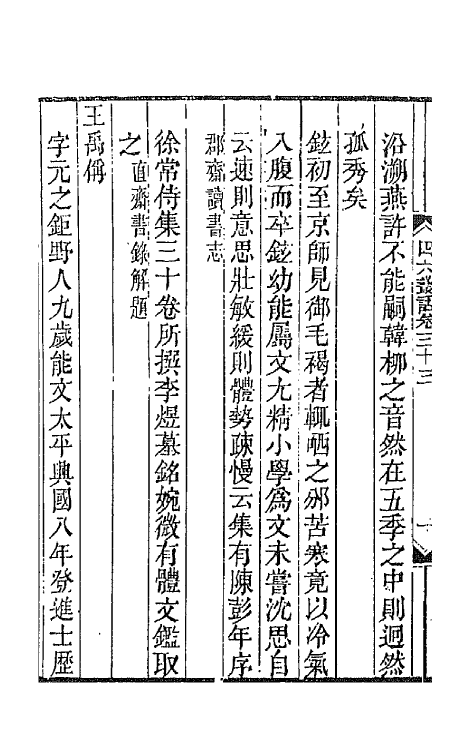 四六叢話卷三十三
沿溯燕許不能嗣韓柳之音然在五季之中則迥然
孤秀矣
鉉初至京師見御毛褐者輒哂之邠苦寒竟以冷氣
入腹而卒鉉幼能屬文尤精小學為文未嘗沈思自
云速則意思壯敏緩則體勢疎慢云集有陳彭年序
郡齋讀書志
徐常侍集三十卷所撰李煜墓銘婉微有體文鑑取
之直齋書錄解題
王禹偁
字元之鉅野人九歲能文太平興國八年登進士歷